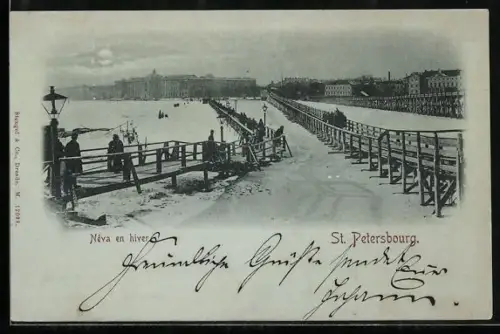 Stengel & Co., Dresden. M. 12089.
Néva en hiver.
St. Petersbourg.
Freundliche Grüße sendet Euer
Johann